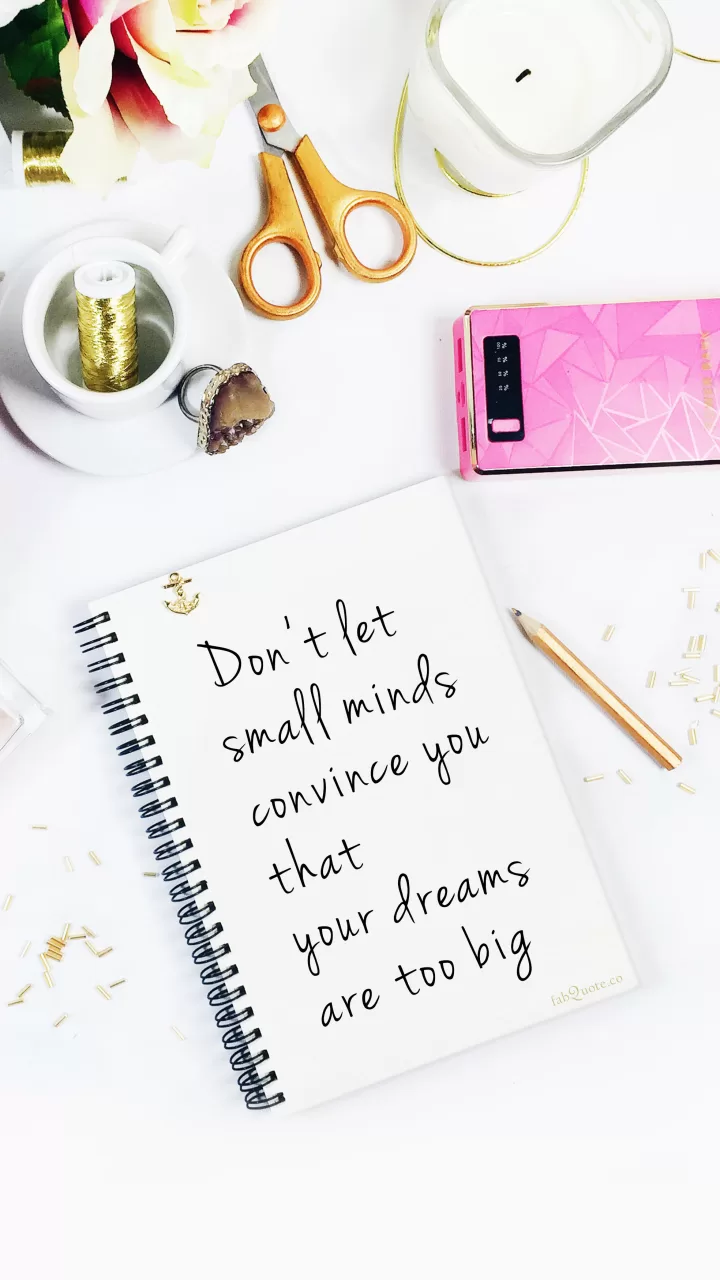 Don't let
small minds
convince you
that
your dreams
are too big
fabQuote.co